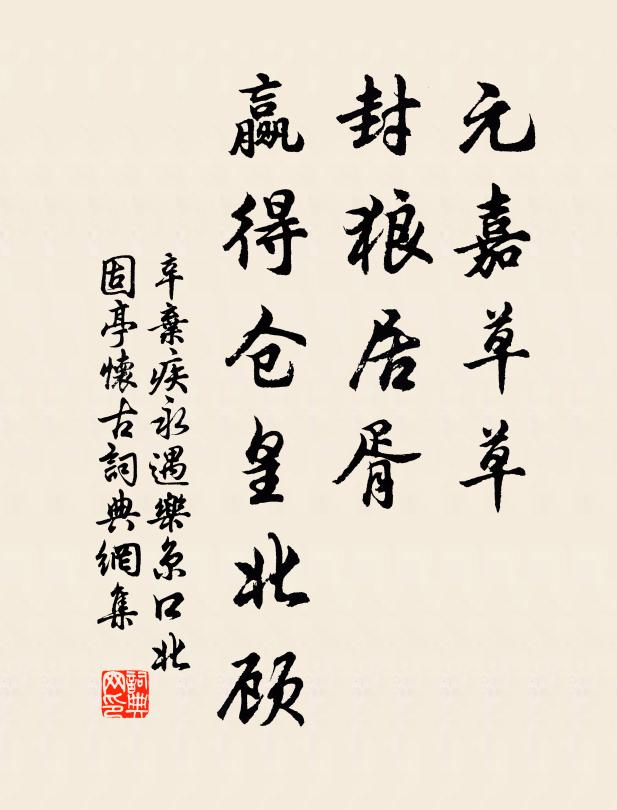 元嘉草草
封狼居胥
赢得仓皇北顾
辛棄疾永遇樂京口北
固亭懷古詞典網集
詞典
网印